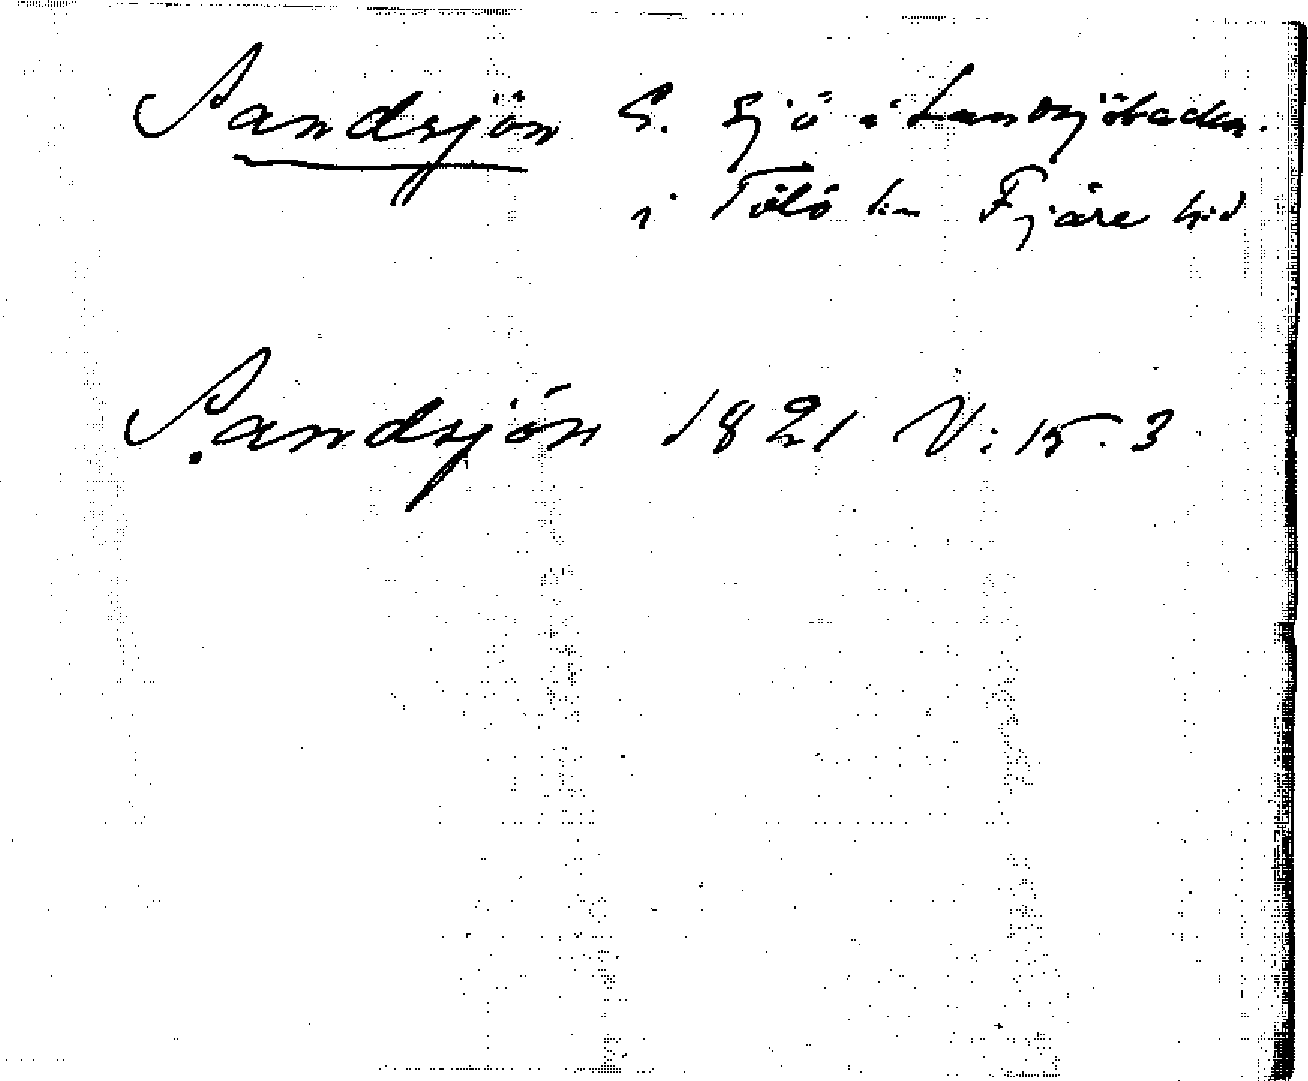 Sandsjön S. Sjö i Landsjöbacka.
i Tölö sn Fjäre hd
Sandsjön 1821 V: 15. 3